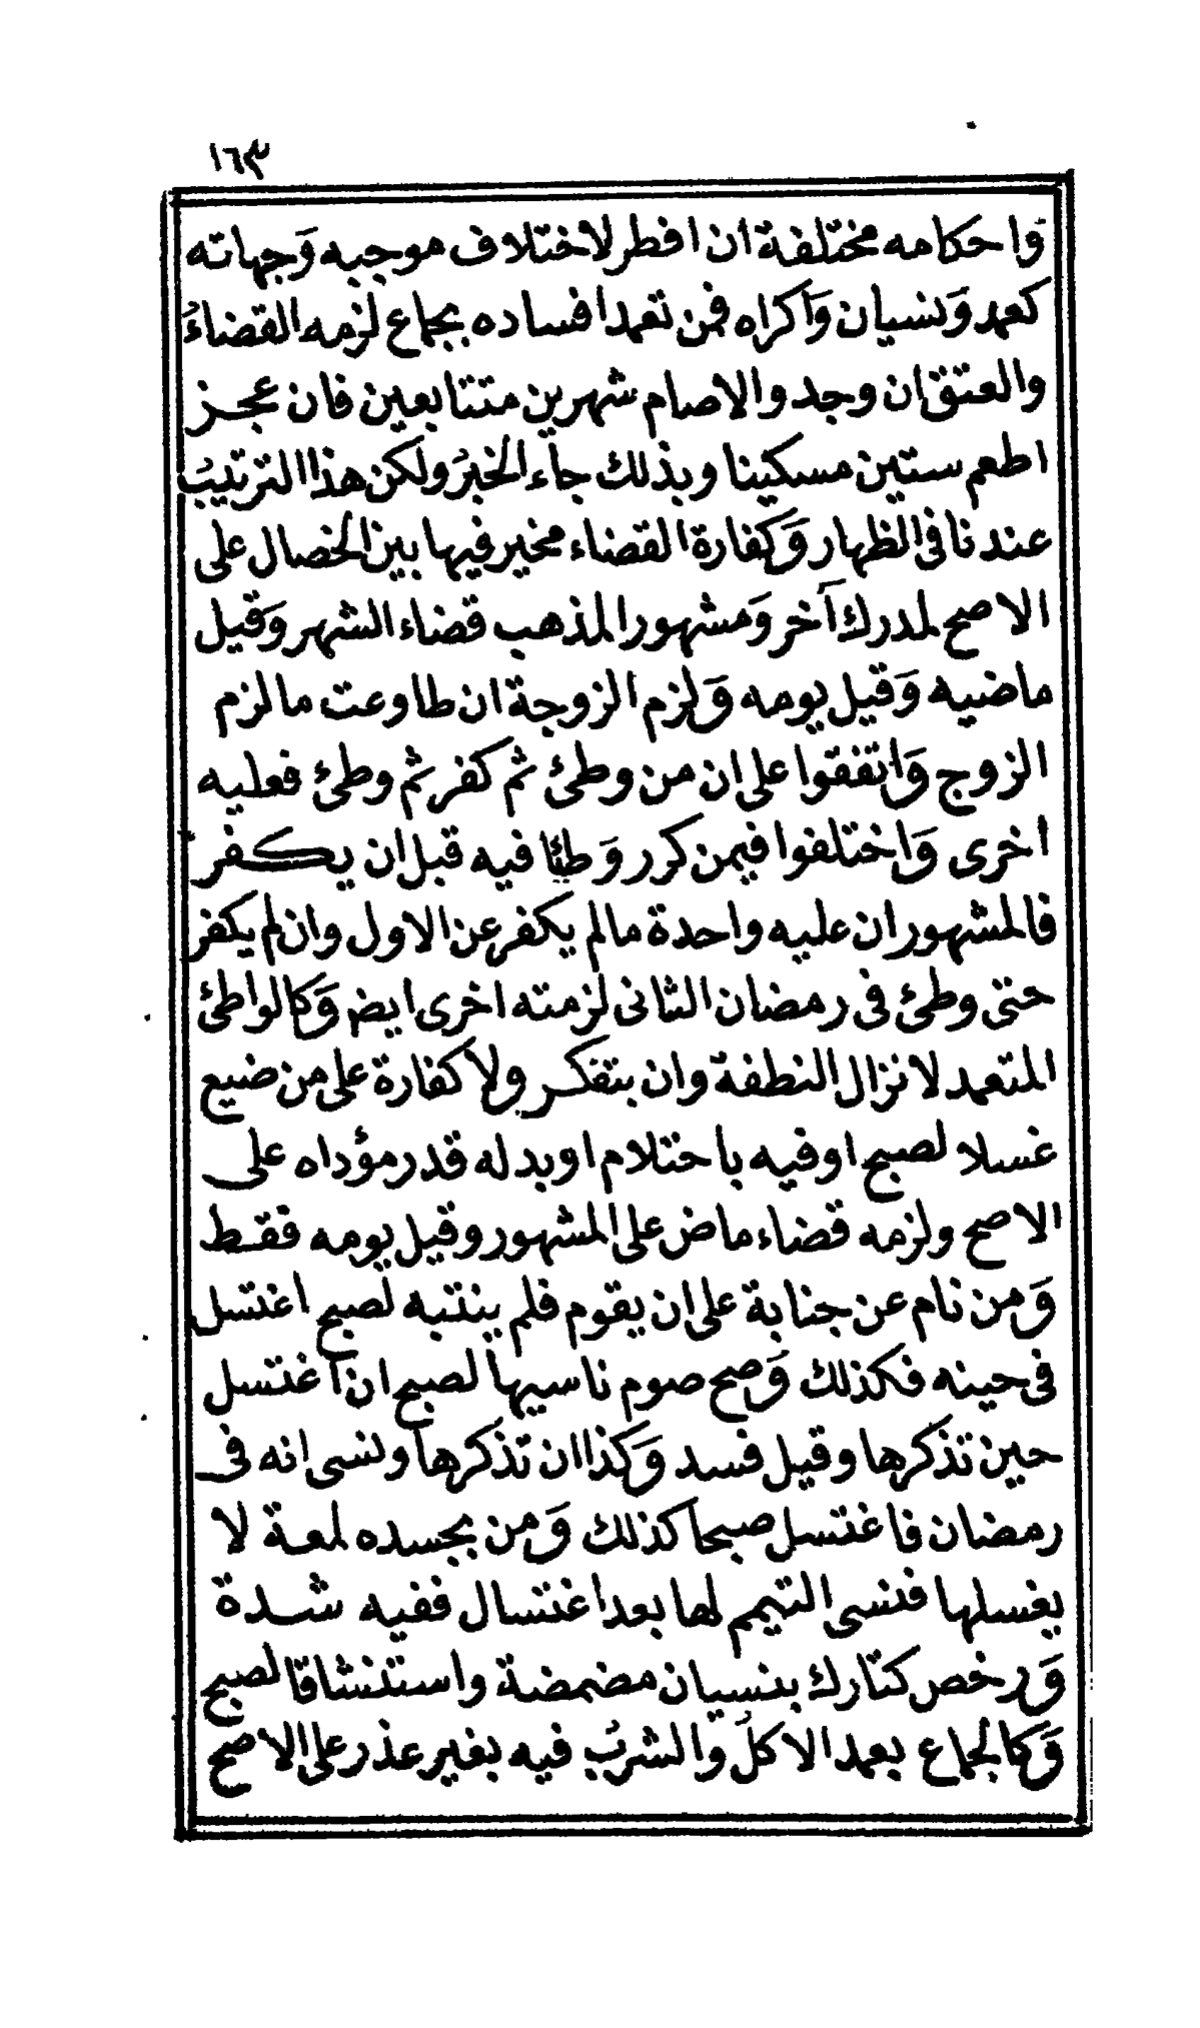 ١٦٣
وَاحكامه مختلفة ان افطر لاختلاف موجبه وَجهاته
كعمد وَنسيان وَاكراه فمن تعمد افساده بجماع لزمه القضاءُ
والعتق ان وجد والا صام شهرين متتابعين فان عجز
اطعم ستين مسكينا وبذلك جاء الخبرُ ولكن هذا الترتيبُ
عندنا فى الظهار وَكفارة القضاء مخير فيها بين الخصال على
الاصح لمدرك آخر وَمشهور المذهب قضاء الشهر وَقيل
ماضيه وَقيل يومه وَلزم الزوجة ان طاوعت ما لزم
الزوج وَاتفقوا على ان من وطئ ثم كفر ثم وطئ فعليه
اخرى وَاختلفوا فيمن كرر وَطئا فيه قبل ان يكفر
فالمشهور ان عليه واحدة مالم يكفر عن الاول وان لم يكفر
حتى وطئ فى رمضان الثانى لزمته اخرى ايض وَكالواطئ
المتعمد لانزال النطفة وان بتفكر ولا كفارة على من ضيع
غسلا لصبح اوفيه باحتلام اوبدله قدر مؤداه على
الاصح ولزمه قضاء ماض على المشهور وقيل يومه فقط
وَمن نام عن جنابة على ان يقوم فلم ينتبه لصبح اغتسل
فى حينه فكذلك وَصح صوم ناسيها لصبح ان اغتسل
حين تذكرها وقيل فسد وَكذا ان تذكرها ونسى انه فى
رمضان فاغتسل صبحا كذلك وَمن بجسده لمعة لا
يغسلها فنسى التيمم لها بعد اغتسال ففيه شدة
وَرخص كتارك بنسيان مضمضة واستنشاقا لصبح
وَكالجماع بعمد الاكلُ والشربُ فيه بغير عذر على الاصح